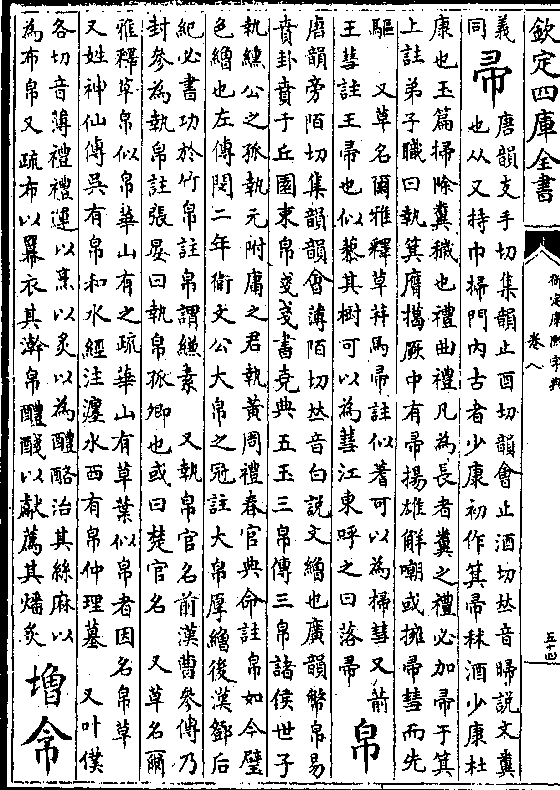 欽定四庫全書
御定康熙字典
卷八
五十四
義同帚唐韻支手切集韻止酉切韻會止酒切𠀤音𡚸說文糞
也从又持巾掃門內古者少康初作箕帚秫酒少康杜
康也玉篇掃除糞穢也禮曲禮凡為長者糞之禮必加帚于箕
上註弟子職曰執箕膺擖厥中有帚揚雄解嘲或擁帚彗而先
驅 又草名爾雅釋草荓馬帚註似蓍可以為掃彗又葥
王彗註王帚也似藜其樹可以為彗江東呼之曰落帚帛
唐韻旁陌切集韻韻會薄陌切𠀤音白說文繒也廣韻幣帛易
賁卦賁于丘園束帛戔戔書堯典五玉三帛傳三帛諸侯世子
執纁公之孤執元附庸之君執黃周禮春官典命註帛如今璧
色繒也左傳閔二年衞文公大帛之冠註大帛厚繒後漢鄧后
紀必書功於竹帛註帛謂縑素 又執帛官名前漢曹參傳乃
封參為執帛註張晏曰執帛孤卿也或曰楚官名 又草名爾
雅釋草帛似帛華山有之疏華山有草葉似帛者因名帛草
又姓神仙傳吳有帛和水經注瀍水西有帛仲理墓 又叶僕
各切音薄禮禮運以烹以炙以為醴酪治其絲麻以
為布帛又疏布以羃衣其澣帛醴醆以獻薦其燔炙增㡵